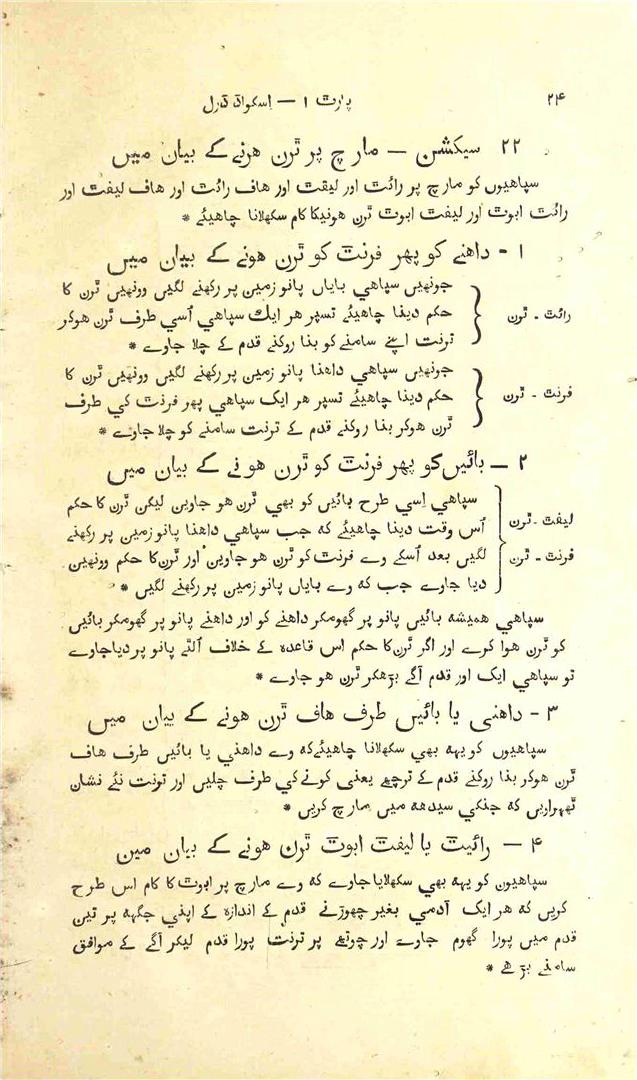 ۲۴ پارٹ ۱ — اِسکواڈ ڈرل
۲۲ سیکشن — مارچ پر ٹرن هرنے کے بیان میں
سپاهیوں کو مارچ پر رائٹ اور لیفٹ اور هاف رائٹ اور هاف لیفٹ اور
رائٹ ابوٹ اور لیفٹ ابوٹ ٹرن هونیکا کام سکھلانا چاهیئے *
۱ - داهنے کو پھر فرنٹ کو ٹرن هونے کے بیان میں
جونهیں سپاهي بایاں پانو زمین پر رکھنے لگیں وونهیں ٹرن کا
رائٹ - ٹرن } حکم دینا چاهیئے تسپر هر ایك سپاهي اُسي طرف ٹرن هوکر
ترنت اپنے سامنے کو بنا روکنے قدم کے چلا جاوے *
جونهیں سپاهي داهنا پانو زمین پر رکھنے لگیں وونهیں ٹرن کا
فرنٹ - ٹرن } حکم دینا چاهیئے تسپر هر ایک سپاهي پھر فرنٹ کي طرف
ٹرن هوکر بنا روکنے قدم کے ترنت سامنے کو چلا جاوے *
۲ — بائیں کو پھر فرنٹ کو ٹرن هونے کے بیان میں
سپاهي اِسي طرح بائیں کو بھي ٹرن هو جاوین لیکن ٹرن کا حکم
لیفٹ - ٹرن } اُس وقت دینا چاهیئے کہ جب سپاهي داهنا پانو زمین پر رکھنے
فرنٹ - ٹرن } لگیں بعد اُسکے وے فرنٹ کو ٹرن هو جاوین اور ٹرن کا حکم وونهین
دیا جاوے جب کہ وے بایاں پانو زمین پر رکھنے لگیں *
سپاهي همیشہ بائیں پانو پر گھومکر داهنے کو اور داهنے پانو پر گھومکر بائیں
کو ٹرن هوا کرے اور اگر ٹرن کا حکم اس قاعدہ کے خلاف اُلٹے پانو پر دیا جاوے
تو سپاهي ایک اور قدم آگے بڑهکر ٹرن هو جاوے *
۳ - داهنی یا بائیں طرف هاف ٹرن هونے کے بیان میں
سپاهیوں کو یہہ بھي سکھلانا چاهیئے کہ وے داهني یا بائیں طرف هاف
ٹرن هوکر بنا روکنے قدم کے ترچھے یعني کونے کي طرف چلیں اور تونت نئے نشان
ٹھہراویں کہ جنکي سیدهہ میں مارچ کریں *
۴ — رائیٹ یا لیفٹ ابوٹ ٹرن هونے کے بیان مین
سپاهیون کو یہہ بھي سکھلایا جاوے کہ وے مارچ پر ابوٹ کا کام اس طرح
کریں کہ هر ایک آدمي بغیر چھوڑنے قدم کے اندازہ کے اپني جگہہ پر تین
قدم میں پورا گھوم جاوے اور چوتھے پر ترنت پورا قدم لیکر آگے کے موافق
سامنے بڑهے *